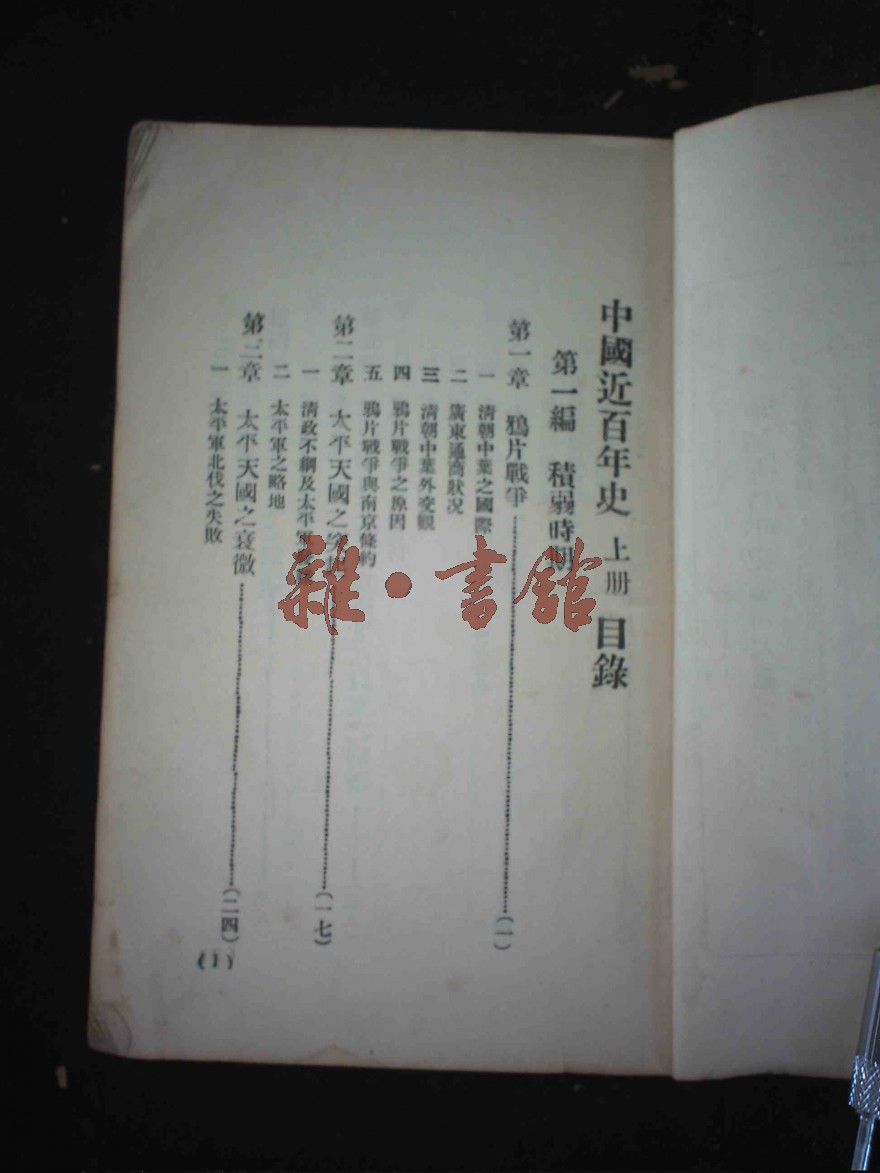 中國近百年史 上册 目錄
第一編 積弱時期
第一章 鴉片戰爭……(一)
一 清朝中葉之國際
二 廣東通商狀况
三 清朝中葉外交觀
四 鴉片戰爭之原因
五 鴉片戰爭與南京條約
第二章 太平天國之突……(一七)
一 清政不綱及太平軍
二 太平軍之略地
第三章 太平天國之衰微……(二四)
一 太平軍北伐之失敗
(1)
雜·書館